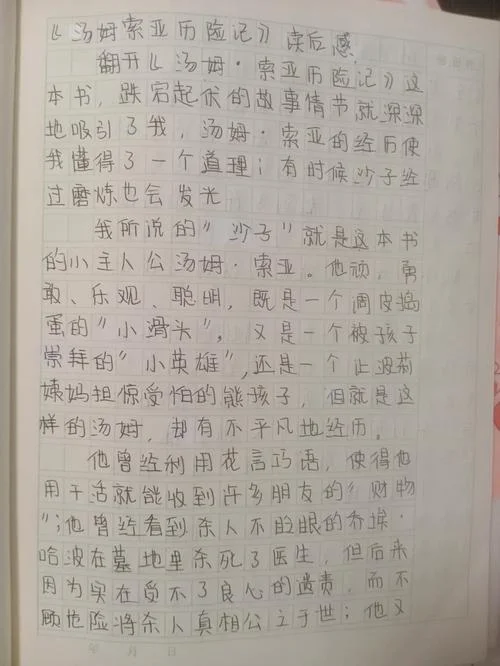 《汤姆索亚历险记》读后感
翻开《汤姆·索亚历险记》这
本书，跌宕起伏的故事情节就深深
地吸引了我，汤姆·索亚的经历使
我懂得了一个道理；有时候沙子经
过磨炼也会发光
我所说的“沙子”就是这本书
的小主人公汤姆·索亚。他顽，勇
敢、乐观、聪明，既是一个调皮捣
蛋的“小滑头”，又是一个被孩子
崇拜的“小英雄”，还是一个让波莉
姨妈担惊受怕的熊孩子，但就是这
样的汤姆，却有不平凡地经历。
他曾经利用花言巧语，使得他
用干活就能收到许多朋友的“财物
”；他曾经看到杀人不眨眼的乔埃·
哈波在墓地里杀死了医生，但后来
因为实在受不了良心的遣责，而不
顾危险将杀人真相公立于世；他又
年 月 日